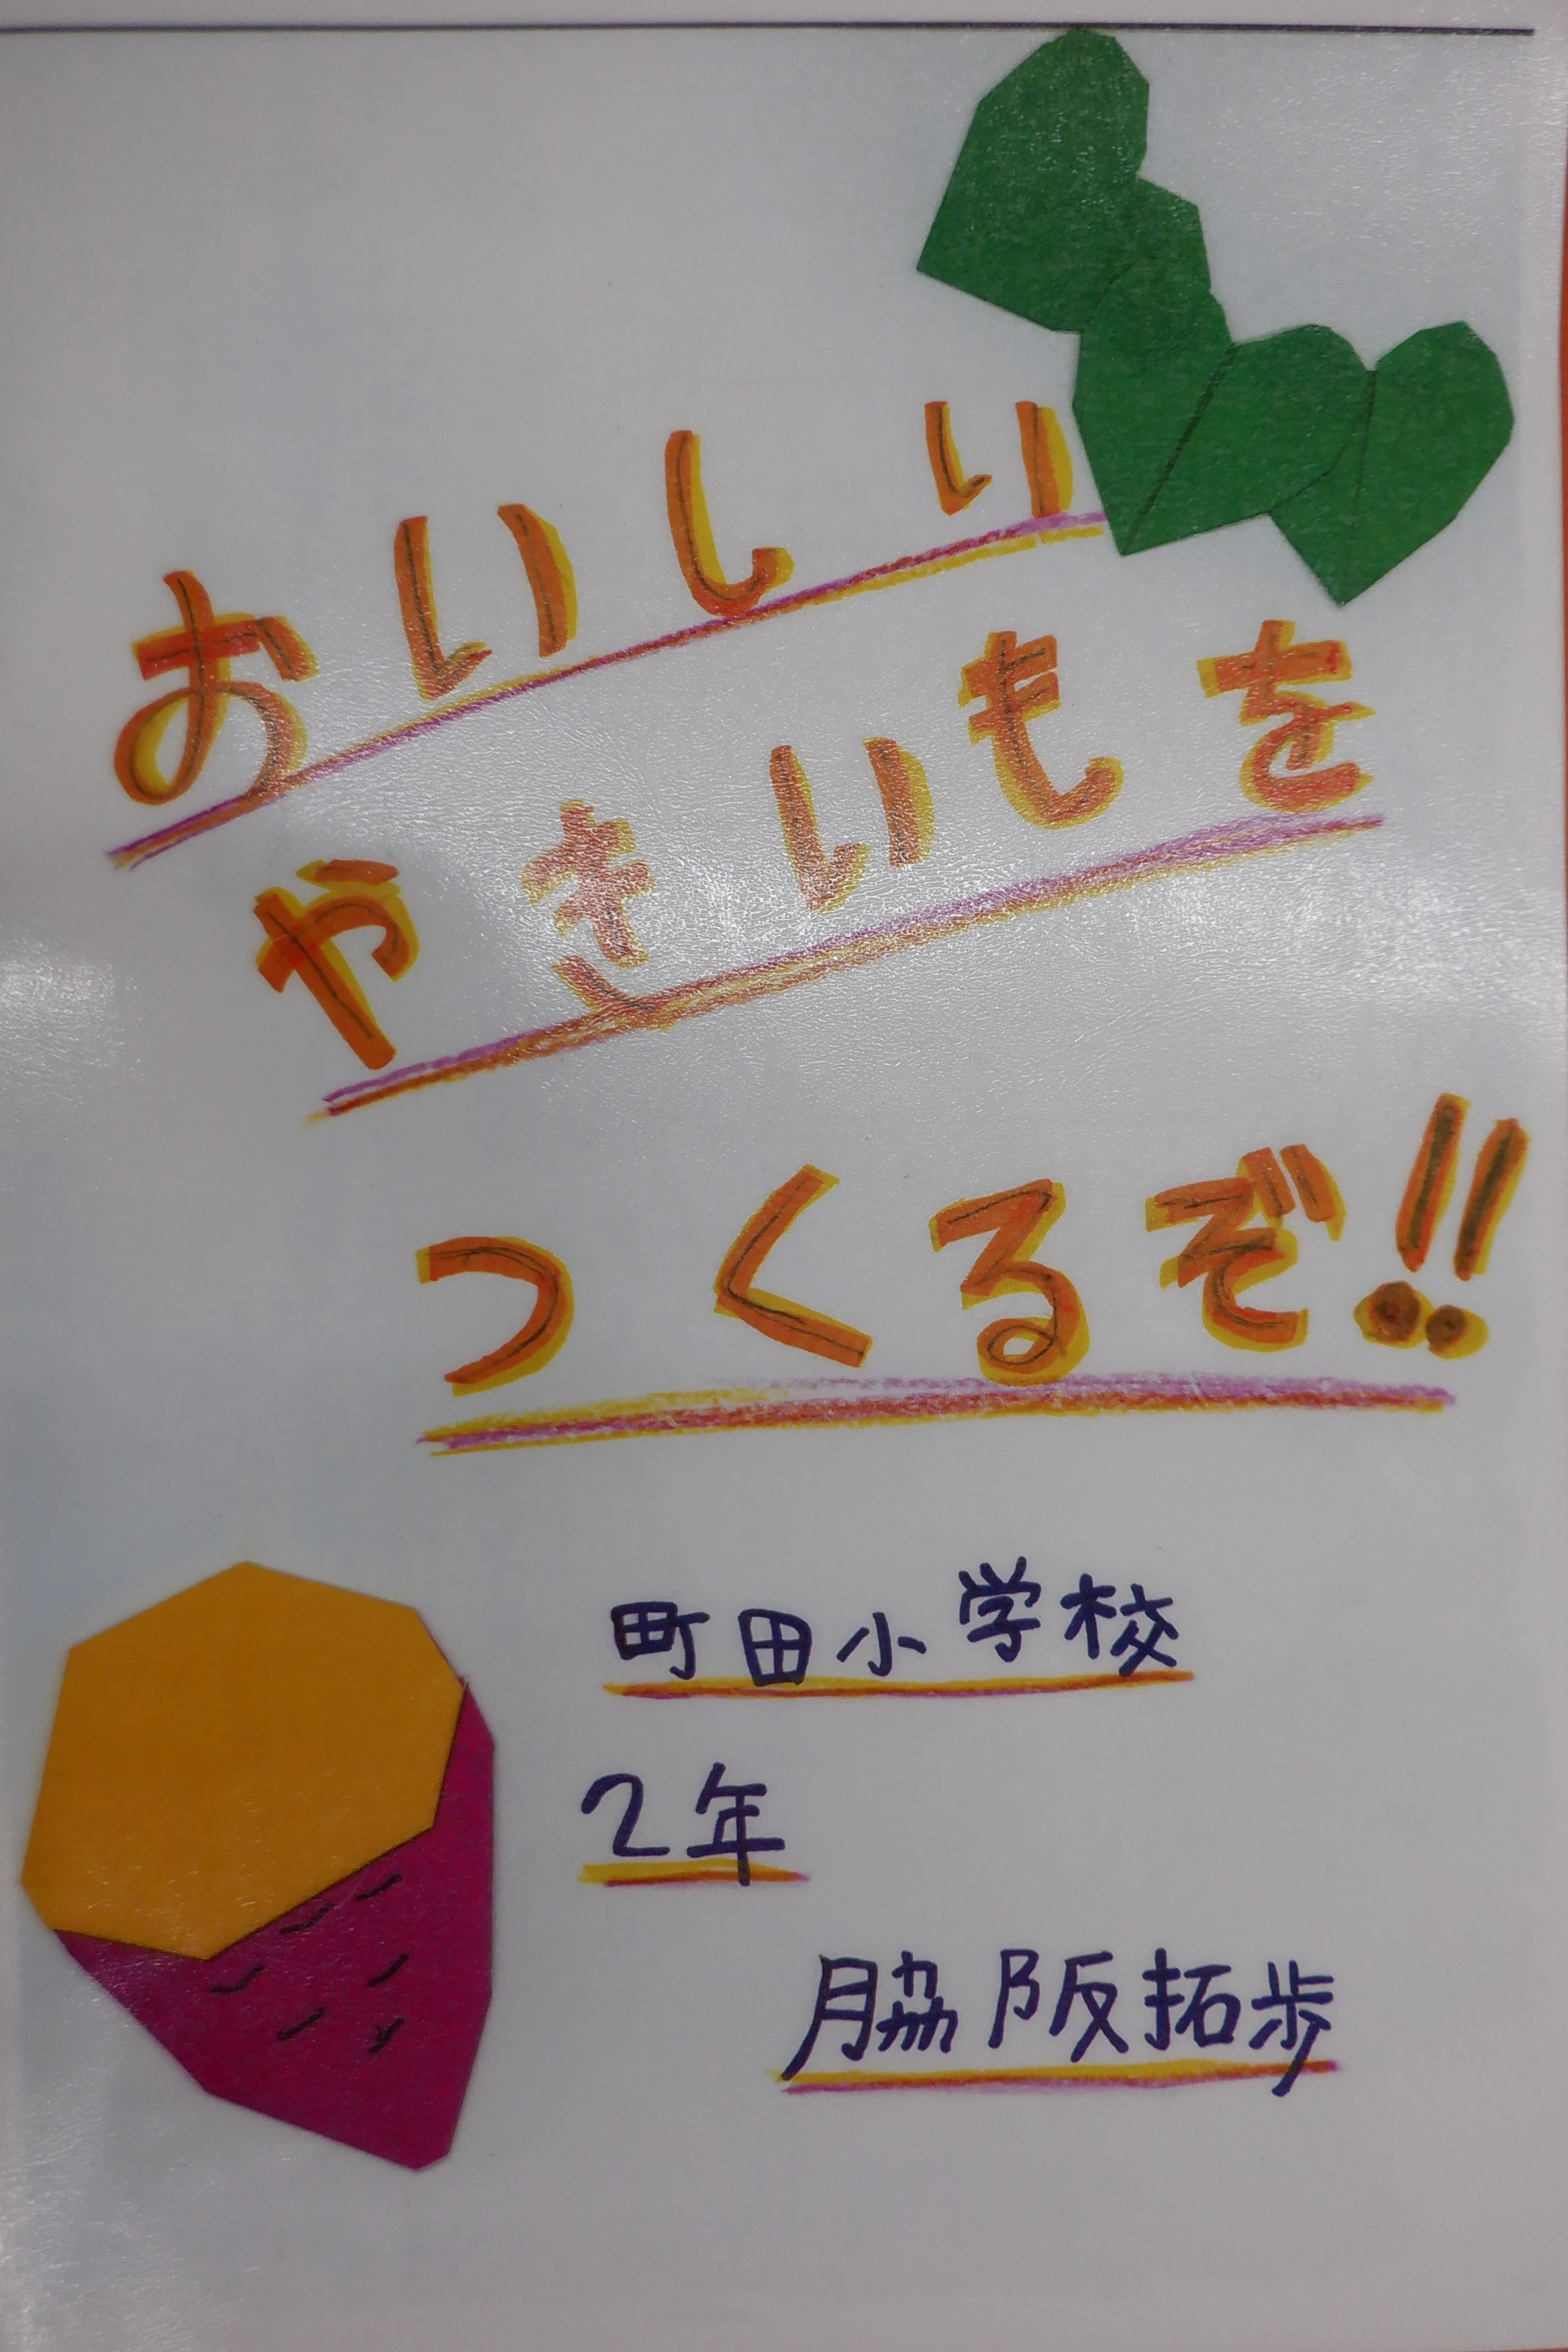 おいしい
やきいもを
つくるぞ!!
町田小学校
2年
脇阪拓歩